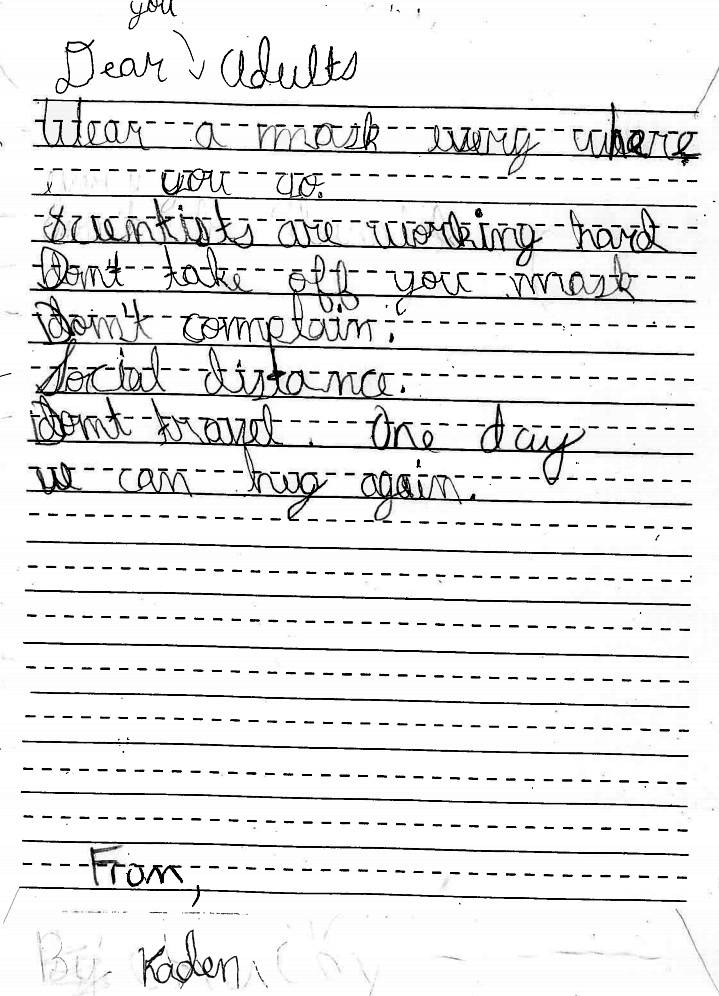 you
Dear adults
Wear a mask every where
you go.
Scientists are working hard
Don't take off you mask
don't complain.
Social distance.
dont travel. One day
we can hug again.
From,
By Kaden